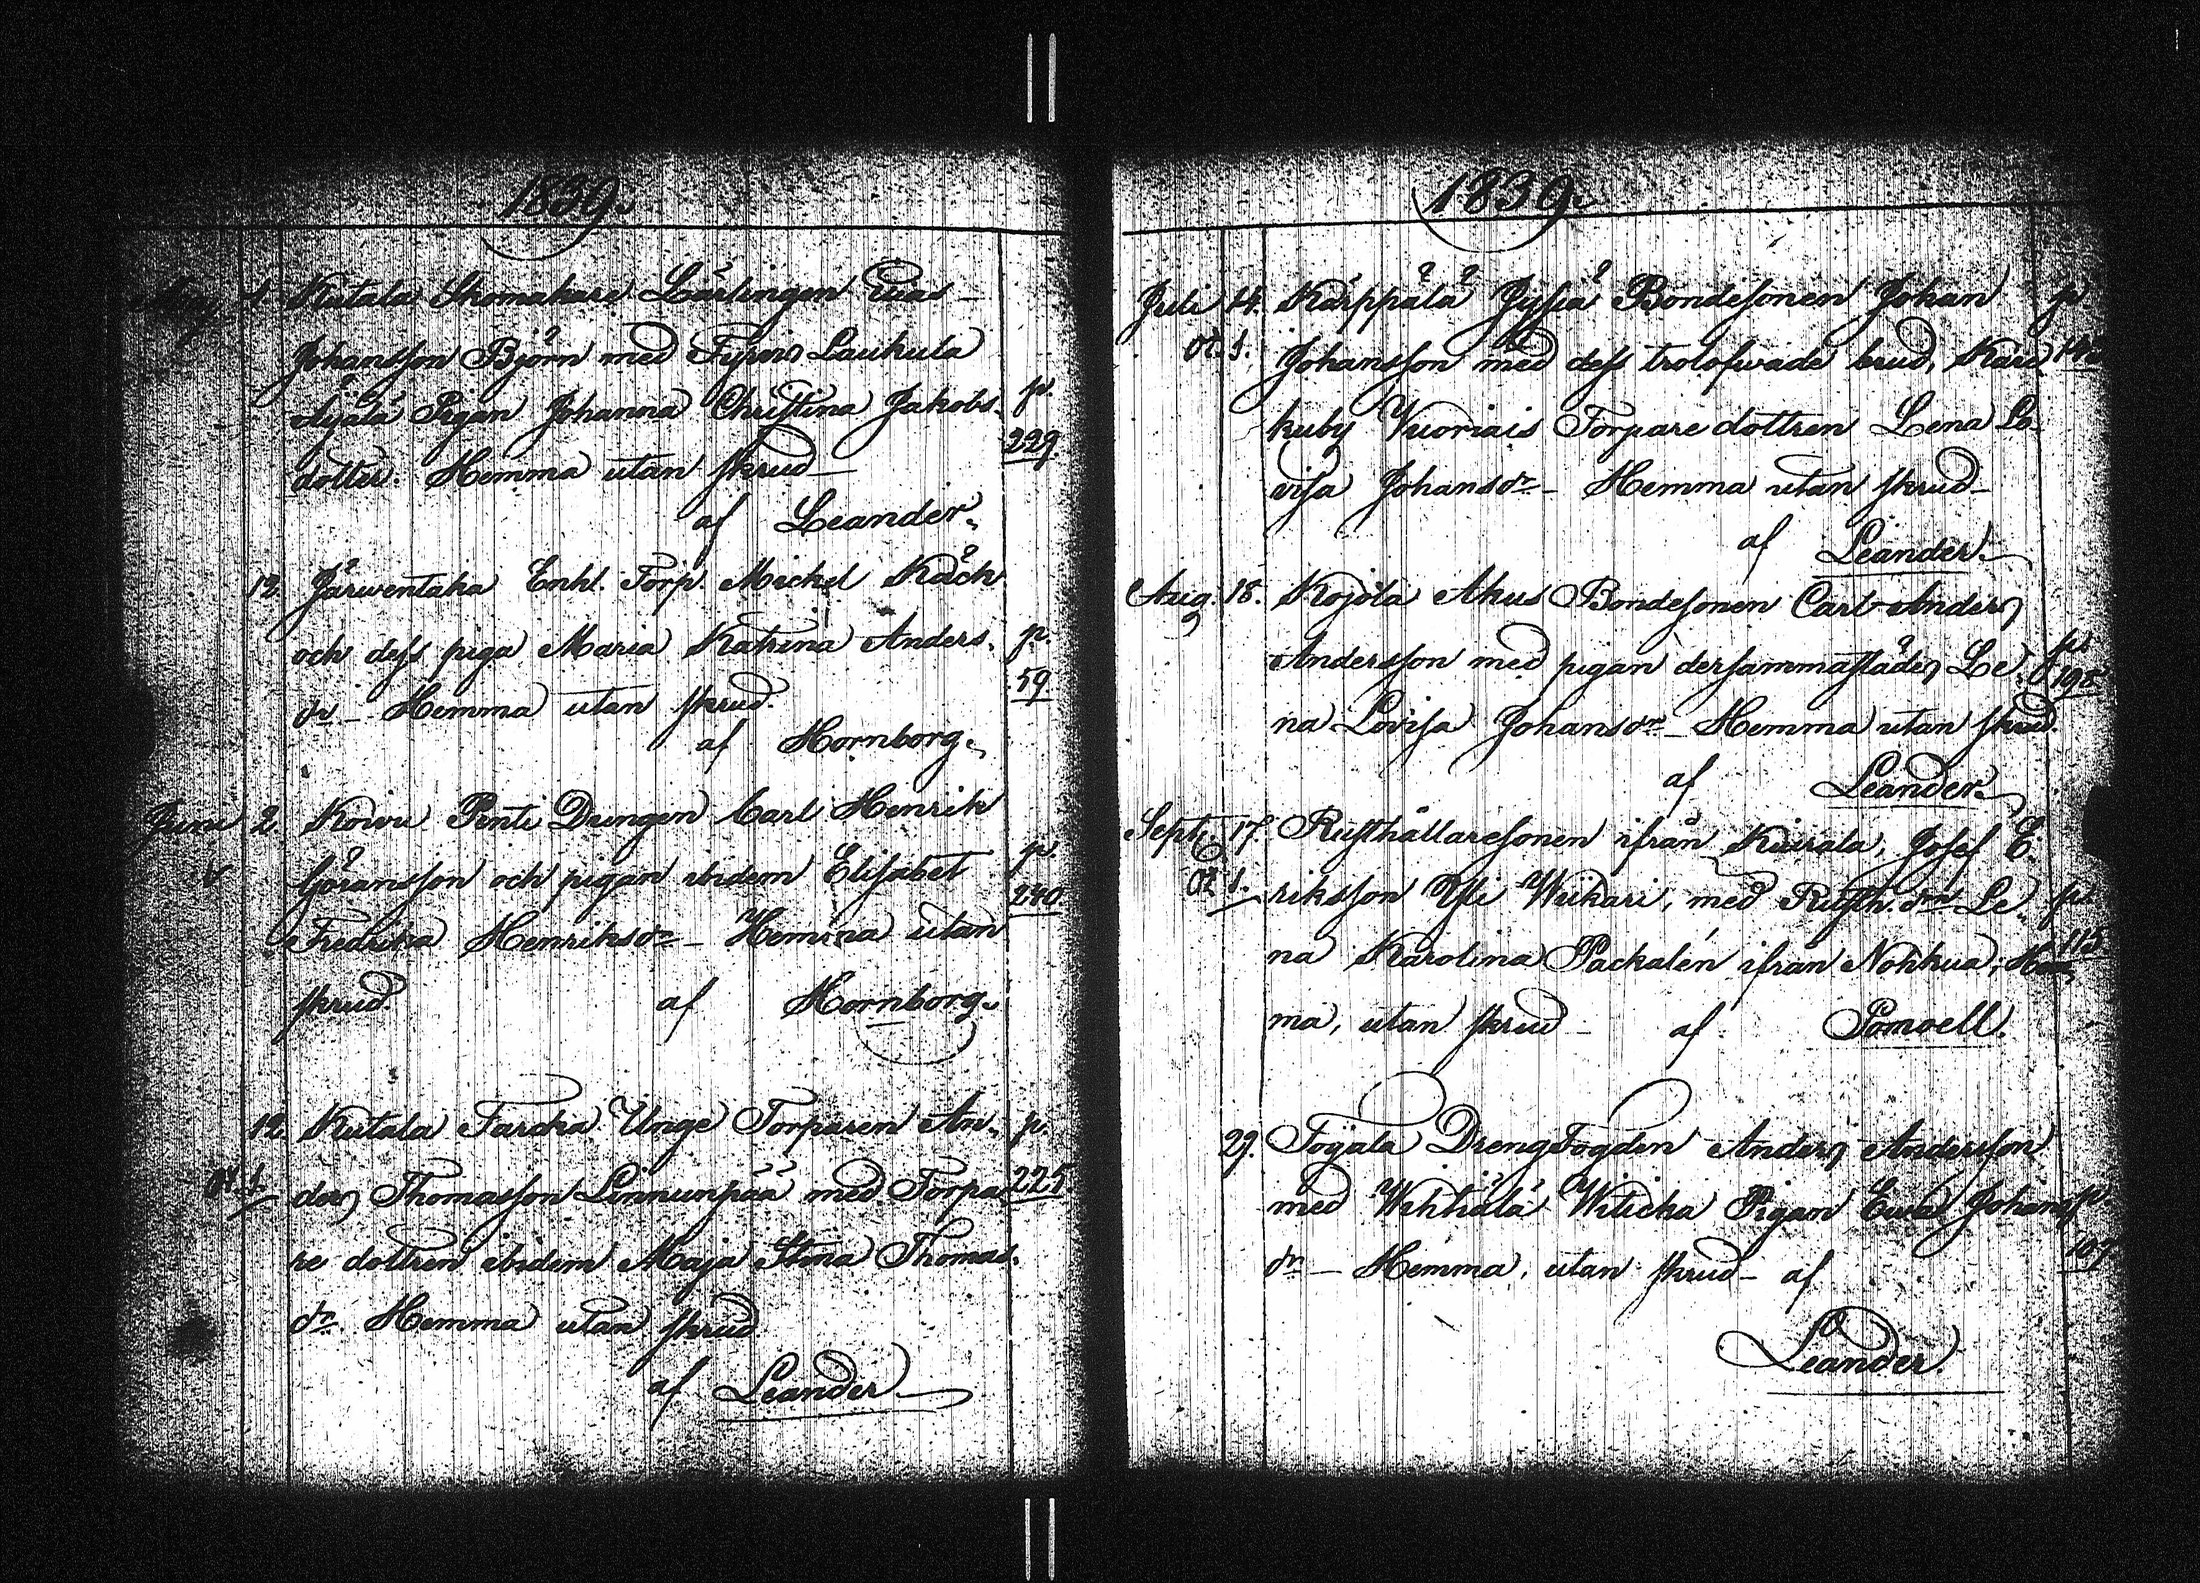 1839.
May 1. Kutala Skomakare Lärlingen Elias
Johansson Björn med Fyrnus Laukula
Äijälä Pigan Johanna Christina Jakobs- p.
dotter. Hemma utan skrud 229.
af Leander.
12. Järwentaka Enkl. Torp. Mickel Käck
och dess piga Maria Katrina Anders- p.
dr. Hemma utan skrud. 59
af Hornborg.
Juni 2. Koivu Penti Drengen Carl Henrik
Göransson och pigan ibidem Elisabet p.
Fredrika Henriksdr. Hemma utan 240
skrud. af Hornborg.
12. Kutala Tarcka Unge Torparen An- p.
ders Thomasson Linnunpää med Torpa- 225
re dottren ibidem Maja Stina Thomas-
dr. Hemma utan skrud
af Leander
1839.
Juli 14. Kärppälä Jyssä Bondesonen Johan p
Johansson med dess trolofwade brud, Kär-
kuby Vuoriais Torpare dottren Lena Lo-
visa Johansdr. Hemma utan skrud
af Leander.
Aug. 18. Kojola Ahus Bondesonen Carl Anders
Andersson med pigan dersammastädes Le- p.
na Lovisa Johansdr. Hemma utan skrud. 198
af Leander.
Sept. 17. Rusthållaresonen ifrån Kiurala, Josef E-
riksson Yli Weikari, med Rusth. dm Le- p.
na Karolina Packalén ifrån Nohkua; Hem- 115
ma, utan skrud af Pomoell.
29. Toyala Drengfogden Anders Andersson
med Wihtiälä Wilicka Pigan Ewa Johans p.
dr. Hemma, utan skrud af 107
Leander.